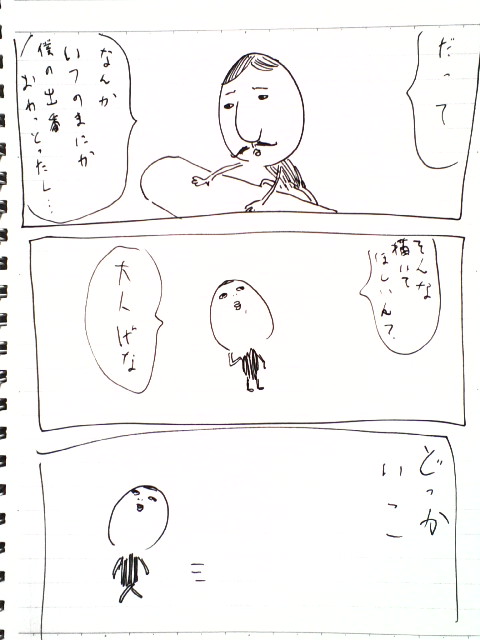 だって
なんか
いつのまにか
僕の出番
おわっとったし…
そんな
描いて
ほしいんて?
大人げな
どっか
いこ